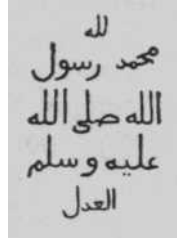 لله
محمد رسول
الله صلى الله
عليه وسلم
العدل